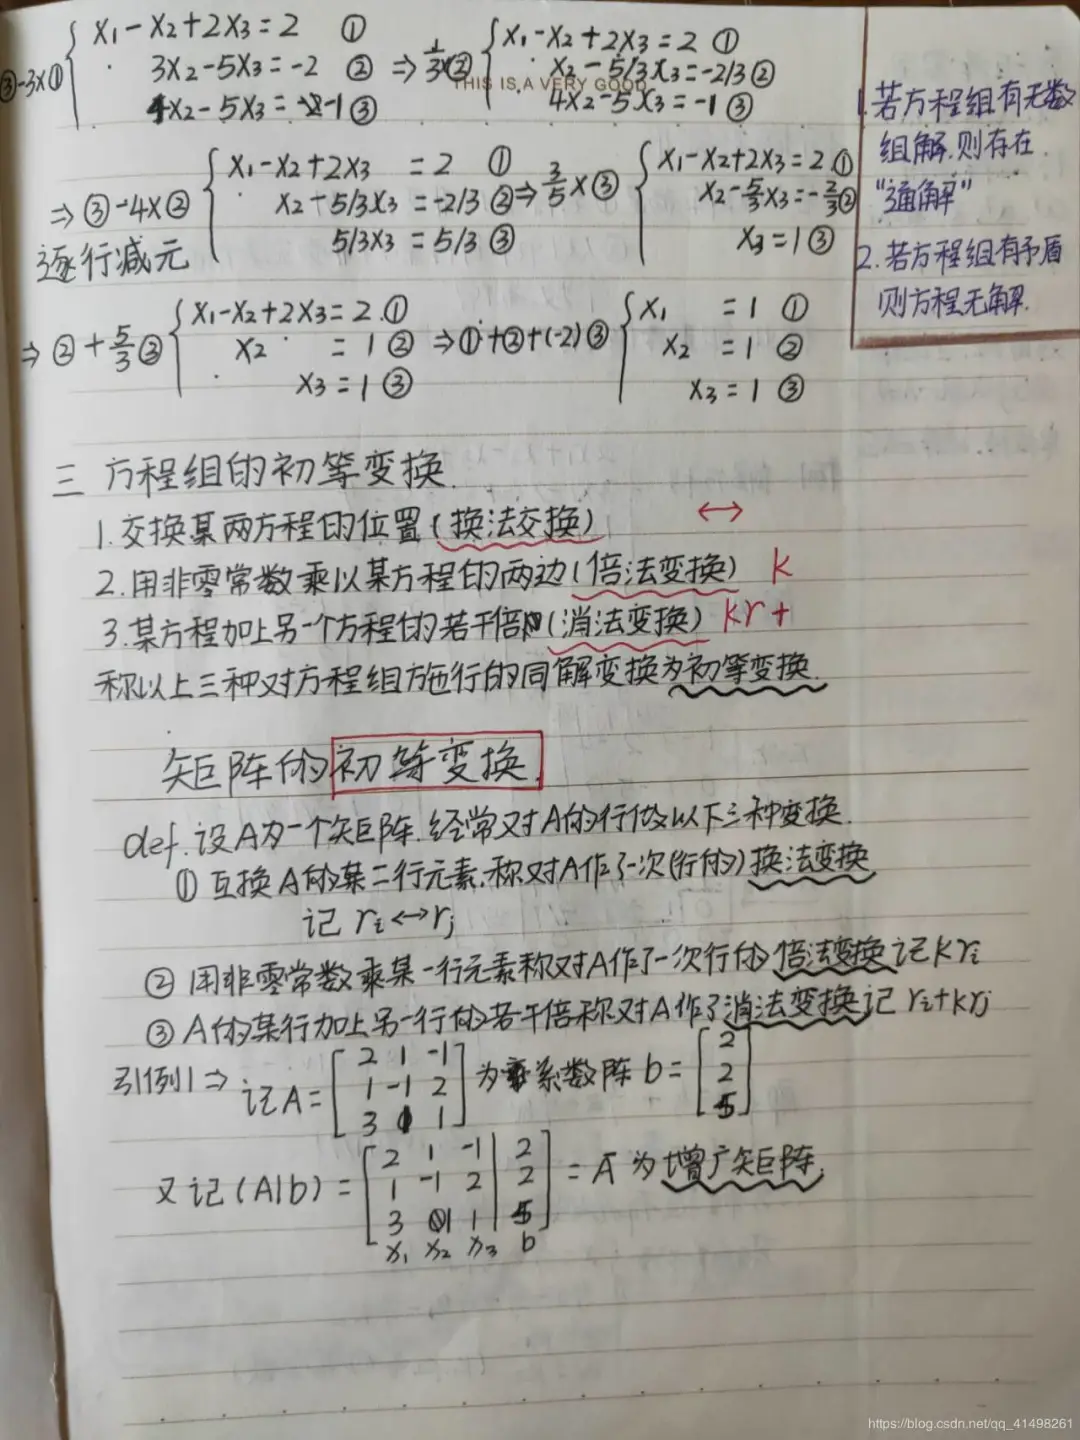 ③-3×① { x₁-x₂+2x₃=2 ①
3x₂-5x₃=-2 ② ⇒ 1/3×②
4x₂-5x₃=-1 ③
{ x₁-x₂+2x₃=2 ①
x₂-5/3x₃=-2/3 ②
4x₂-5x₃=-1 ③
THIS IS A VERY GOOD
⇒ ③-4×② { x₁-x₂+2x₃=2 ①
x₂-5/3x₃=-2/3 ② ⇒ 3/5×③
5/3x₃=5/3 ③
逐行减元
{ x₁-x₂+2x₃=2 ①
x₂-5/3x₃=-2/3 ②
x₃=1 ③
1.若方程组有无数
组解.则存在
“通解”
2.若方程组有矛盾
则方程无解.
⇒ ②+5/3③ { x₁-x₂+2x₃=2 ①
x₂=1 ② ⇒ ①+②+(-2)③
x₃=1 ③
{ x₁=1 ①
x₂=1 ②
x₃=1 ③
三 方程组的初等变换.
1.交换某两方程的位置(换法交换) ↔
2.用非零常数乘以某方程的两边(倍法变换) k
3.某方程加上另一个方程的若干倍(消法变换) kr+
称以上三种对方程组施行的同解变换为初等变换.
矩阵的初等变换.
def.设A为一个矩阵.经常对A的行做以下三种变换.
① 互换A的某二行元素.称对A作了一次(行的)换法变换
记 rᵢ↔rⱼ
② 用非零常数乘某一行元素称对A作了一次行的倍法变换记krᵢ
③ A的某行加上另一行的若干倍称对A作了消法变换记 rᵢ+krⱼ
引例1⇒ 记A=[2 1 -1; 1 -1 2; 3 1 1] 为系数阵 b=[2; 2; 5]
又记(A|b)=[2 1 -1 | 2; 1 -1 2 | 2; 3 1 1 | 5] = Ā 为增广矩阵.
x₁ x₂ x₃ b
https://blog.csdn.net/qq_41498261